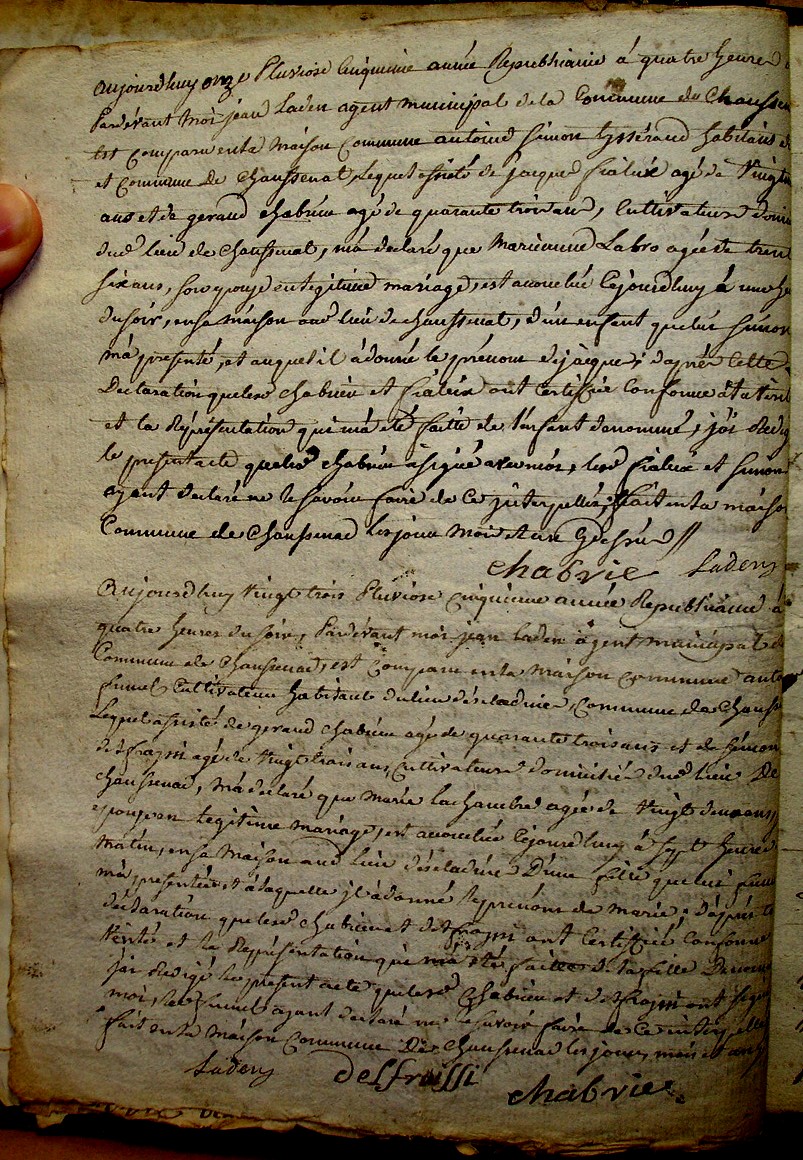 aujourdhuy onze Pluviose Cinquieme année Republicaine à quatre heures
Pardevant moi jean Laden agent municipal de la Commune de Chaussen
est comparu en la maison Commune antoine Simon tisserand habitant
et Commune de Chaussenat, lequel assisté de jacques fialeix agé de Vingt
ans et de geraud chabrie agé de quarante trois ans, Cultivateurs domi
dud lieu de Chaussenat, m'a déclaré que Marianne Labro agée de trent
six ans, son epouse en legitime mariage, est accouchée Cejourdhuy à une he
du soir, en sa maison aud lieu de chaussenat, d'un enfant que led Simon
m'a presenté, et auquel il à donné le prénom de jacques; d'après Cette
Declaration que lesd chabrie et fialeix ont Certifiée Conforme à la Verit
et la Représentation qui m'a été faite de l'enfant denommé, j'ai Redig
le present acte que led chabrie à signé avec moi, lesd fialeix et Simon
ayant declaré ne le savoir faire de Ce interpellés, fait en la maison
Commune de Chaussenac les jour mois et an
chabrie Ladeng
Aujourdhuy Vingt trois Pluviose Cinquieme année Republicaine à
quatre heures du soir, Pardevant moi jean Laden agent municipal de
Commune de Chaussenac, est Comparu en la maison commune anto
Cultivateur habitant du lieu commune de Chauss
Lequel assisté de geraud chabrie agé de quarante trois ans et de Simon
delfraissi agé de Vingt trois ans, Cultivateurs domiciliés dud lieu De
Chaussenac, m'a declaré que Marie Lachambre agée de Vingt deux ans,
epouse en legitime mariage, est accouchée Cejourdhuy à sept heures
matin, en sa Maison aud lieu D'une fille que led
m'a presentée et à laquelle il à donné le prénom de Marie; D'après
déclaration que lesd chabrie et delfraissi ont Certifiée Conforme
Verité et la Représentation qui m'a été faite de la fille Denom
j'ai Redigé le present acte que lesd Chabrie et delfraissi ont signé
moi, led ayant declaré ne le savoir faire de Ce interpellé
fait en la Maison Commune De Chaussenac les jour, mois et an
Ladeng delfraissi chabrie